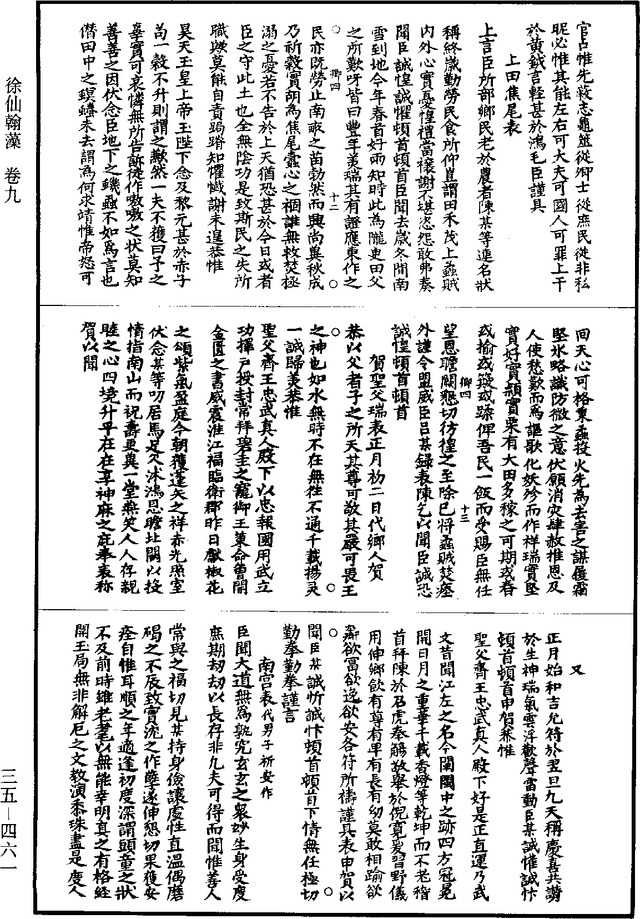 徐仙翰藻 卷九
三五—四六一
官占惟先蔽志龜筮從卿士從庶民從非私
昵必惟其能左右可大夫可國人可罪上干
於黃鉞言輕甚於鴻毛臣謹具
上田焦尾表
上言臣所部鄉民老於農者陳某等連名狀
稱終歲勤勞民食所仰直謂田禾茂上蟊賊
內外心實憂惶禮當禳謝不堪恣怨敢弗奏
聞臣誠惶誠懼頓首頓首臣聞去歲冬間南
雪到地今年春首好雨知時此為隴叟田父
之所歎呀皆曰豐年美瑞其有證應東作之
卿四
十二
民亦既勞止南畝之苗勃然而興尚冀秋成
乃祈穀實胡為焦尾蠹心之祻誰無救焚極
溺之憂若不告於上天猶恐甚於今日或者
臣之守此土也全無陰功是致斯民之失所
職繇莫能自責跼蹐知懼懺謝未遑恭惟
昊天玉皇上帝玉陛下念及黎元甚於赤子
苟一穀不升則謂之歉然一夫不獲曰予之
辜實可哀憐無所告訴徒作嗷嗷之狀莫知
善善之因伏念臣地下之蟣蝨不如焉言也
僣田中之瞑螻未去謂為何求靖惟帝怒可
回天心可格秉蟊投火先為去害之謀履霜
堅氷略識防微之意伏願消灾肆赦推恩及
人使愁歎而為謳歌化妖殄而作祥瑞實堅
實好實頴實栗有大田多稼之可期或舂
或揄或簸或蹂俾吾民一飯而受賜臣無任
卿四
十三
望恩瞻闕懇切彷徨之至除已將蟊賊焚瘞
外謹令盟威臣呂某錄表陳乞以聞臣誠恐
誠惶頓首頓首
賀聖父瑞表正月初二日代鄉人賀
恭以父者子之所天其尊可敬其嚴可畏王
之神也如水無時不在無往不通千載揚灵
一誠歸美恭惟
聖父齊王忠武真人殿下以忠報國用武立
功揮戶授封常拜碧圭之寵御王蓂命會開
金匱之書威震淮江福臨衛郡昨日獻椒花
之頌紫氣盈庭今朝穫蓬矢之祥赤光照室
伏念某等叨居馬足久沐鴻恩瞻北闕以投
情指南山而祝壽更冀一堂燕笑人人存親
睦之心四境升平在在享神庥之庇奉表稱
賀以聞
又
正月始和吉允符於翌旦九天稱慶喜共謝
於生神瑞氣雲浮歡聲雷動臣某誠懽誠忭
頓首頓首申賀恭惟
聖父齊王忠武真人殿下好是正直運乃武
文昔聞江左之名今闡閩中之跡四方冠冕
開日月之重華千載香燈等乾坤而不老稽
首拜陳於石虎奉觴敬舉於倪寬爰習野儀
用伸鄉飲有尊有卑有長有幼莫敢相踰欲
壽欲富欲逸欲安各符所禱謹具表申賀以
聞臣某誠忻誠忭頓首頓首下情無任極切
勤拳勤拳謹言
南宫表代男子祈安作
臣聞大道無為孰究玄玄之衆妙生身受度
庶期刼刼以長存非凡夫可得而聞惟善人
常與之福切見某持身儉讓處性直溫偶磨
碣之不辰致實沈之作孽遂伸懇切果獲安
痊自惟耳順之年適逢初度深謂頭童之狀
不及前時雖老耄以無能幸明真之有格經
開玉局無非解厄之文教演黍珠盡是度人